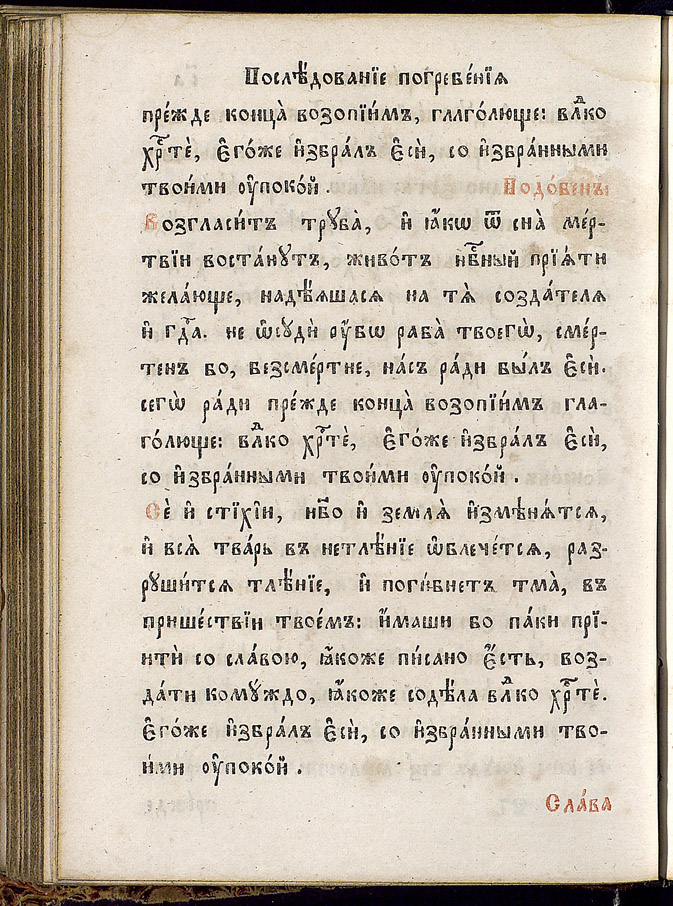 Послѣ́дованїе погребе́нїѧ
пре́жде конца̀ возопїи́мъ, глаго́люще: влⷣко
хрⷭ҇тѐ, є҆го́же и҆збра́лъ є҆сѝ, со и҆збра́нными
твои́ми ᲂу҆поко́й. Подо́бенъ:
Возгласи́тъ трꙋба̀, и҆ ꙗ҆́кѡ ѿ сна̀ ме́р-
твїи воста́нꙋтъ, живо́тъ нбⷭ҇ный прїѧ́ти
жела́юще, надѣ́ѧшасѧ на тѧ̀ созда́телѧ
и҆ гдⷭ҇а. не ѡ҆сꙋдѝ ᲂу҆́бѡ раба̀ твоегѡ̀, сме́р-
тенъ бо, безсме́ртне, на́съ ра́ди бы́лъ є҆сѝ.
сегѡ̀ ра́ди пре́жде конца̀ возопїи́мъ гла-
го́люще: влⷣко хрⷭ҇тѐ, є҆го́же и҆збра́лъ є҆сѝ,
со и҆збра́нными твои́ми ᲂу҆поко́й.
Сѐ и҆ стїхі́и, нб҃о и҆ землѧ̀ и҆змѣнѧ́тсѧ,
и҆ всѧ̀ тва́рь въ нетлѣ́нїе ѡ҆блече́тсѧ, раз-
рꙋши́тсѧ тлѣ́нїе, и҆ поги́бнетъ тма̀, въ
прише́ствїи твое́мъ: и҆́маши бо па́ки прїи-
итѝ со сла́вою, ꙗ҆́коже пи́сано є҆́сть, воз-
да́ти комꙋ́ждо, ꙗ҆́коже содѣ́ла влⷣко хрⷭ҇тѐ.
є҆го́же и҆збра́лъ є҆сѝ, со и҆збра́нными тво-
и́ми ᲂу҆поко́й.
Сла́ва